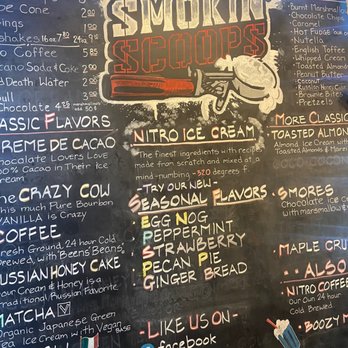 SMOKIN
SCOOPS
Cone
16oz 7.80 24oz
Coffee 2.00
Soda & Coke 2.00
Death Water 2.00
Chocolate 4.25
Flavors
Creme De Cacao
Chocolate Lovers Love
100% Cacao in Their Ice
Cream
The Crazy Cow
This much Pure Bourbon
Vanilla is Crazy
Coffee
Fresh Ground, 24 hour Cold
Brewed, with Beens' Beans
Russian Honey Cake
Sour Cream & Honey is a
Traditional Russian Favorite
Matcha V
Organic Japanese Green
Tea Ice Cream with Vegan
Base
Nitro Ice Cream
The finest ingredients with recipes
made from scratch and mixed at a
mind-numbing -320 degrees f
-Try our new-
Seasonal Flavors
· Egg Nog
· Peppermint
· Strawberry
· Pecan Pie
· Ginger Bread
-Like us on-
facebook
-Burnt Marshmallow
-Chocolate Chips
-Caramel
-Hot Fudge
-Nutella
-English Toffee
-Whipped Cream
-Toasted Almonds
-Peanut Butter
-Coconut
-Russian Honey Cake
-Brownie Bite
-Pretzels
More Classic
Toasted Almond
Almond Ice Cream with
Toasted Almonds
S'mores
Chocolate ice
with marshmallow &
Maple Cru
Also
Nitro Coffee
Our Own 24 hour
Cold Brewed.
Boozy M